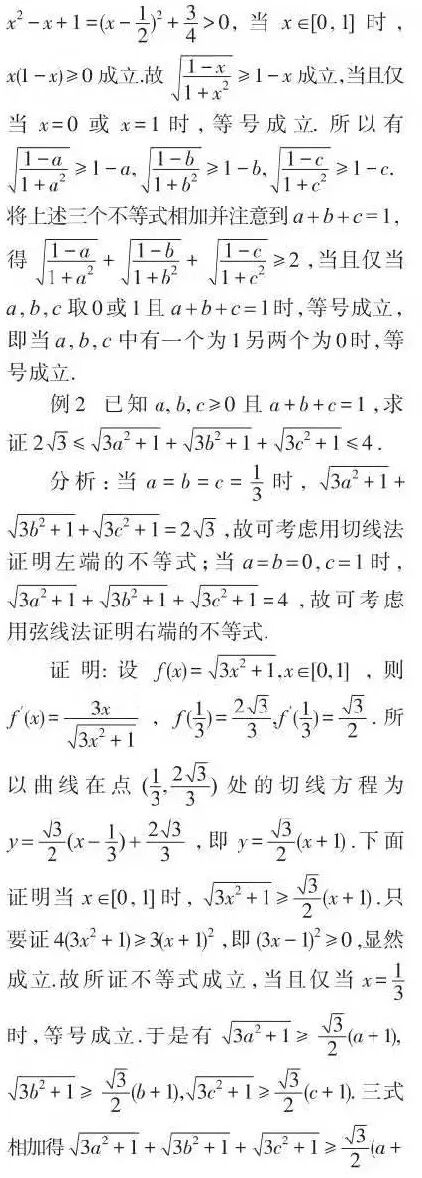 x²-x+1=(x-1/2)²+3/4>0, 当 x∈[0,1] 时,
x(1-x)≥0 成立.故 √((1-x)/(1+x²)) ≥1-x 成立,当且仅
当 x=0 或 x=1 时, 等号成立. 所以有
√((1-a)/(1+a²)) ≥1-a, √((1-b)/(1+b²)) ≥1-b, √((1-c)/(1+c²)) ≥1-c.
将上述三个不等式相加并注意到 a+b+c=1,
得 √((1-a)/(1+a²)) + √((1-b)/(1+b²)) + √((1-c)/(1+c²)) ≥2 ,当且仅当
a,b,c 取0或1且 a+b+c=1时,等号成立,
即当 a,b,c 中有一个为1另两个为0时,等
号成立.
例2 已知 a,b,c≥0 且 a+b+c=1 ,求
证 2√3 ≤ √(3a²+1) + √(3b²+1) + √(3c²+1) ≤4.
分析:当 a=b=c=1/3 时, √(3a²+1) +
√(3b²+1) + √(3c²+1) =2√3 ,故可考虑用切线法
证明左端的不等式;当 a=b=0,c=1 时,
√(3a²+1) + √(3b²+1) + √(3c²+1) =4 ,故可考虑
用弦线法证明右端的不等式.
证明:设 f(x)=√(3x²+1),x∈[0,1] ,则
f'(x)=3x/√(3x²+1) , f(1/3)=2√3/3,f'(1/3)=√3/2. 所
以曲线在点 (1/3,2√3/3) 处的切线方程为
y=√3/2(x-1/3)+2√3/3 ,即 y=√3/2(x+1).下面
证明当 x∈[0,1] 时, √(3x²+1) ≥√3/2(x+1).只
要证 4(3x²+1)≥3(x+1)² ,即 (3x-1)²≥0 ,显然
成立.故所证不等式成立,当且仅当 x=1/3
时,等号成立.于是有 √(3a²+1) ≥ √3/2(a+1),
√(3b²+1) ≥ √3/2(b+1),√(3c²+1) ≥√3/2(c+1). 三式
相加得 √(3a²+1) + √(3b²+1) + √(3c²+1) ≥√3/2(a+